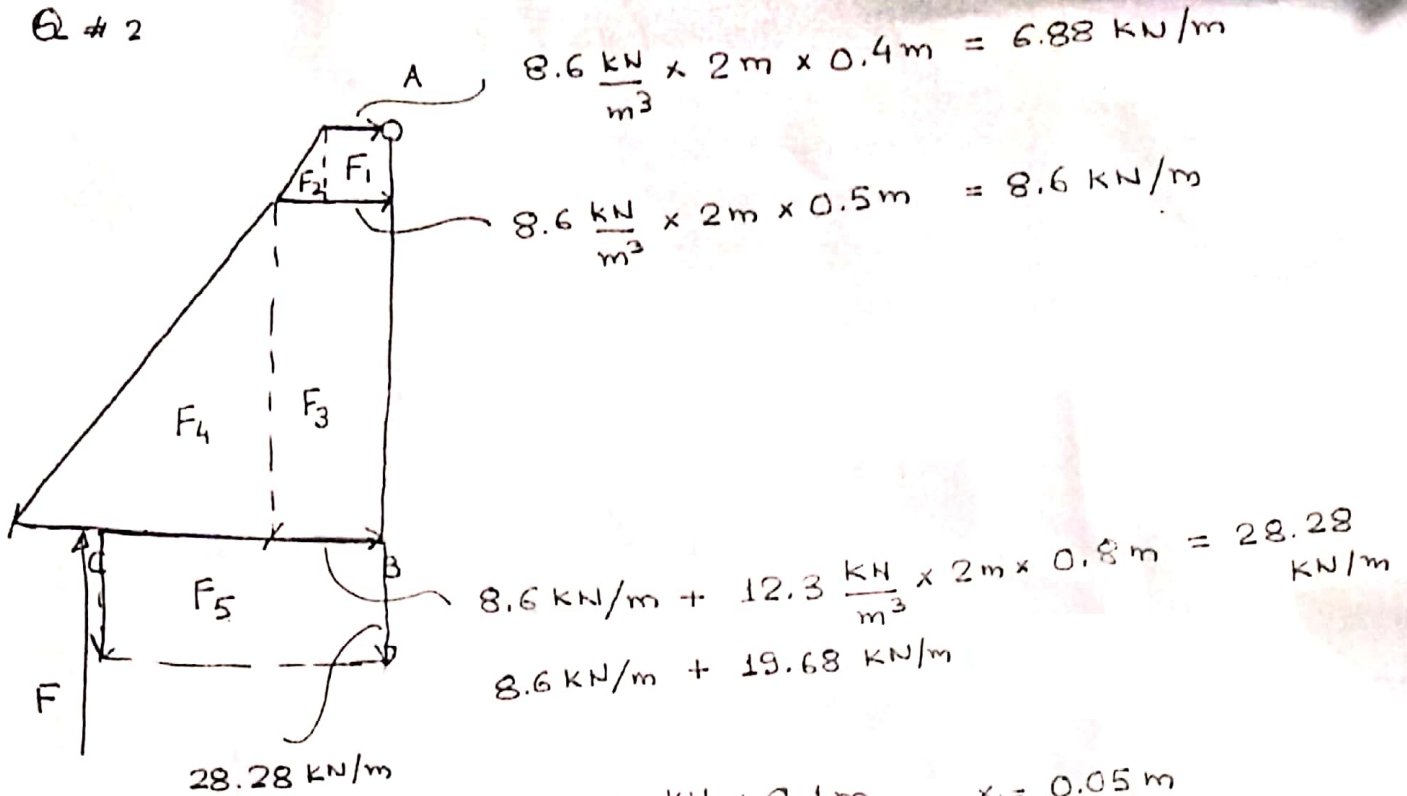 Q # 2
A
8.6 kN/m³ x 2 m x 0.4 m = 6.88 kN/m
F₁
F₂
8.6 kN/m³ x 2 m x 0.5 m = 8.6 kN/m
F₄
F₃
C
B
F₅
8.6 kN/m + 12.3 kN/m³ x 2 m x 0.8 m = 28.28 kN/m
8.6 kN/m + 19.68 kN/m
F
28.28 kN/m
0.05 m